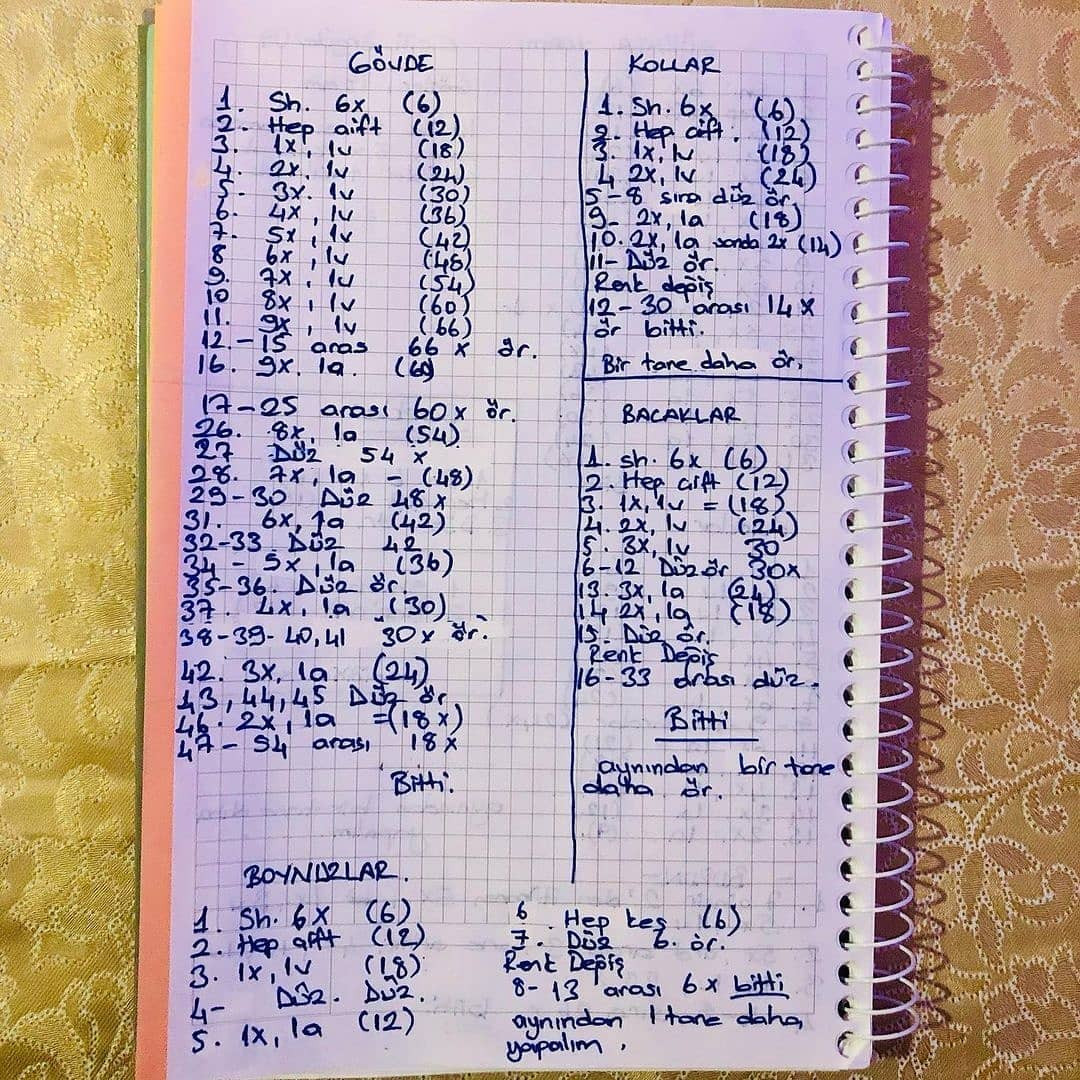 GÖVDE
1. Sh. 6x (6)
2. Hep çift (12)
3. 1x, 1v (18)
4. 2x, 1v (24)
5. 3x. 1v (30)
6. 4x, 1v (36)
7. 5x, 1v (42)
8 6x, 1v (48)
9. 7x, 1v (54)
10 8x, 1v (60)
11. 9x, 1v (66)
12.-15 aras 66 x ör.
16. 9x. 1a. (60)
17-25 arası 60x ör.
26. 8x, 1a (54)
27 Düz 54 x
28. 7x, 1a - (48)
29-30 Düz 48 x
31. 6x, 1a (42)
32-33 Düz 42
34 - 5x, 1a (36)
35-36. Düz ör.
37. 4x, 1a (30)
38-39-40,41 30x ör.
42. 3x, 1a (24)
43,44,45 Düz ör
46. 2x, 1a =(18x)
47-54 arası 18x
Bitti.
KOLLAR
1. Sh. 6x (6)
2. Hep çift. (12)
3. 1x, 1v (18)
4 2x, 1v (24)
5-8 sıra düz ör.
9- 2x, 1a (18)
10. 2x, 1a sonda 2x (14)
11- Düz ör.
Renk değiş
12-30 arası 14x
ör bitti.
Bir tane daha ör.
BACAKLAR
1. sh. 6x (6)
2. Hep çift (12)
3. 1x, 1v = (18)
4. 2x, 1v (24)
5. 3x, 1v 30
6-12 Düz ör 30x
13. 3x, 1a (24)
14 2x, 1a (18)
15. Düz ör.
Renk Değiş
16-33 arası düz.
Bitti
aynından bir tane
daha ör.
BOYNUZLAR.
1. Sh. 6x (6)
2. Hep çift (12)
3. 1x, 1v (18)
4- Düz. Düz.
5. 1x, 1a (12)
6. Hep kes (6)
7. Düz 6. ör.
Renk Değiş
8-13 arası 6x bitti
aynından 1 tane daha,
yapalım.